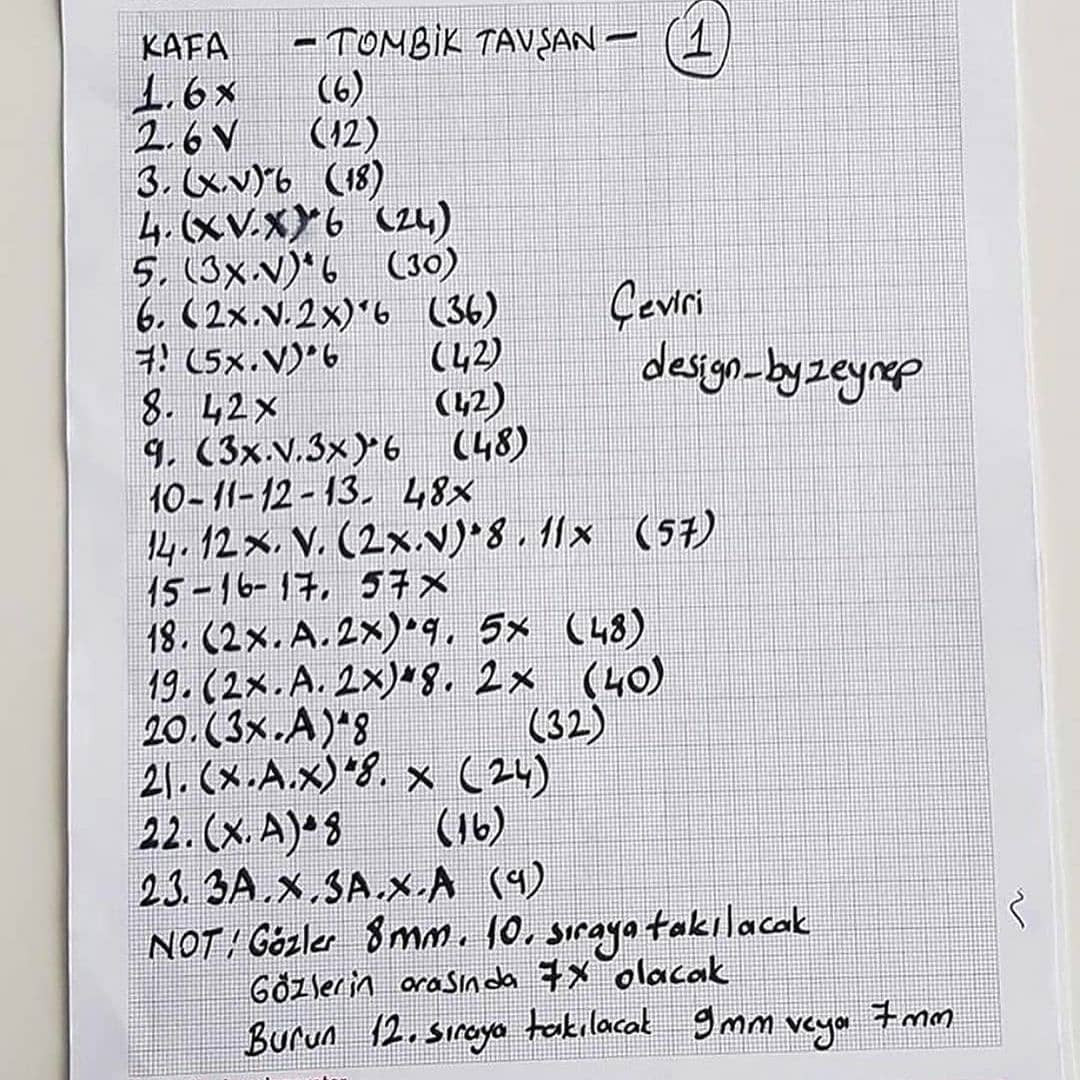 KAFA - TOMBİK TAVŞAN - 1
1. 6x (6)
2. 6V (12)
3. (x.v)*6 (18)
4. (xV.x)*6 (24)
5. (3x.V)*6 (30)
6. (2x.V.2x)*6 (36)
Çeviri
7! (5x.V)*6 (42)
design_byzeynep
8. 42x (42)
9. (3x.V.3x)*6 (48)
10-11-12-13. 48x
14. 12x. V. (2x.V)*8. 11x (57)
15-16-17. 57x
18. (2x.A.2x)*9. 5x (48)
19. (2x.A.2x)*8. 2x (40)
20. (3x.A)*8 (32)
21. (x.A.x)*8. x (24)
22. (x.A)*8 (16)
23. 3A.x.3A.x.A (9)
NOT! Gözler 8mm. 10. sıraya takılacak
Gözlerin arasında 7x olacak
Burun 12. sıraya takılacak 9mm veya 7mm